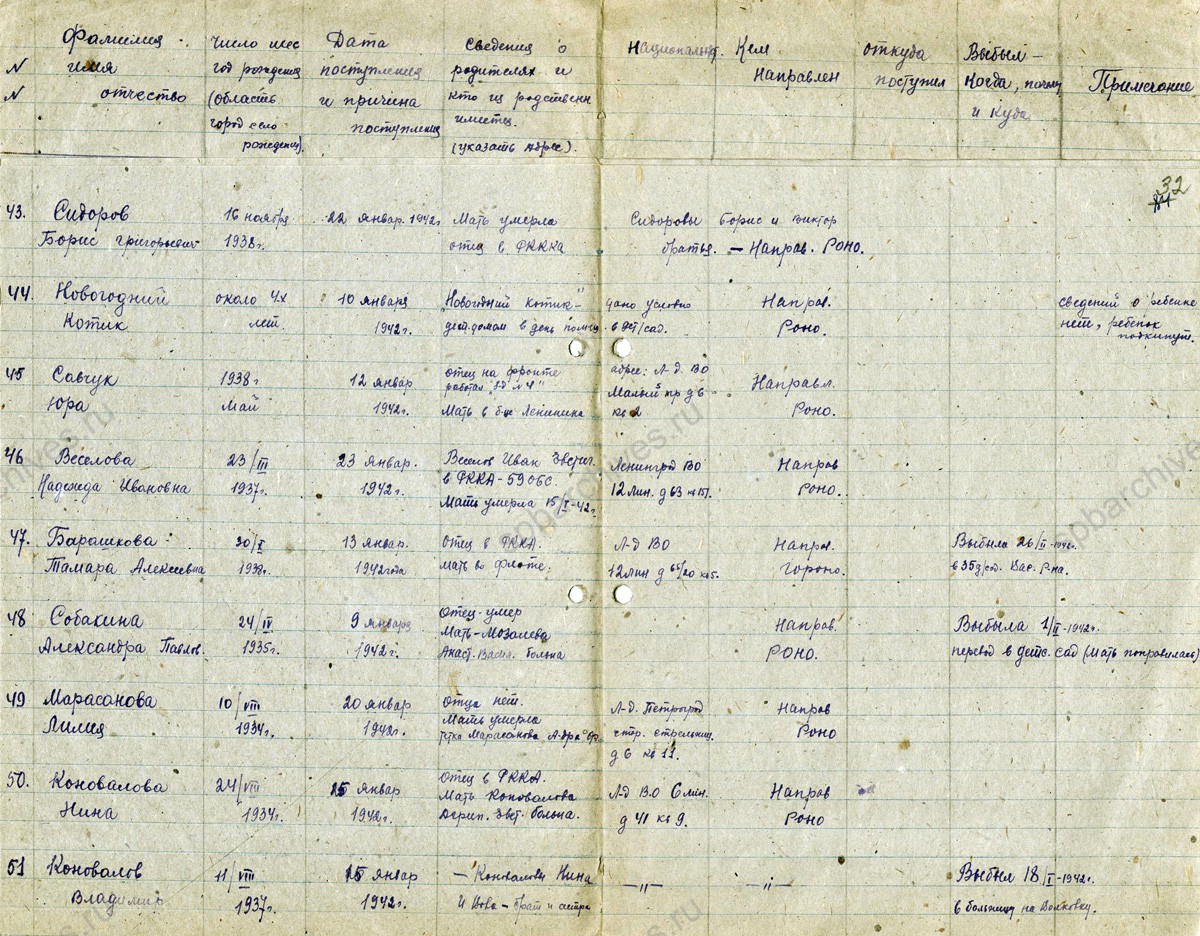 N N
Фамилия имя отчество
Число мес год рождения (область город село рождения).
Дата поступления и причина поступления
Сведения о родителях и кто из родственн имеется. (указать адрес).
Национальн.
Кем Направлен
откуда поступил
Выбыл – Когда, почему и куда
Примечание
32
43. Сидоров 16 ноября 22 январ. 1942г Мать умерла Сидоровы Борис и Виктор
Борис Григорьевич 1938г. отец в РККА братья. – Направ. РОНО.
44. Новогодний около 4х 10 января „Новогодний котик" – дано условно Направ. сведений о ребенке
Котик лет. 1942г. дет.домом в день помещ. в дет/сад. Роно. нет, ребенок подкинут.
45 Савчук 1938г 12 январ отец на фронте адрес: Л-д. ВО Направл.
Юра Май 1942г. работал Малый пр д 6 – Роно.
Мать в б-це Ленинина кв 2
46 Веселова 23/III 23 январ. Веселов Иван Ленинград ВО Направ
Надежда Ивановна 1937г. 1942г. в РККА – 59 ОБС. 12 лин. д 63 кв 151. Роно.
Мать умерла 15/I-42г.
47. Барашкова 30/X 13 январ. отец в РККА. Л-д ВО Направ. Выбыла 26/II-1942г.
Тамара Алексеевна 1938г. 1942года мать во флоте. 12 лин д 65/20 кв 5. Гороно. в 35 д/сад. Вас. Р-на.
48 Собакина 24/IV 9 января Отец-умер Направ. Выбыла 1/II-1942г.
Александра Павлов. 1935г. 1942г. Мать – Мозалева РОНО. перевод в детс. сад (Мать поправилась)
Анаст. Васил. больна
49 Марасанова 10/VIII 20 январ отца нет. Л-д. Петрогр Направ
Лилия 1934г. 1942г. Мать умерла стр. стрельниц. Роно
тетка Марасанова д 6 кв 11.
50. Коновалова 24/VIII 15 январ Отец в РККА. Л-д В.О 6 лин. Направ
Нина 1934г. 1942г. Мать Коновалова д 41 кв 9. Роно
больна.
51 Коновалов 11/VIII 15 январ – Коноваловы Нина –"– –"– Выбыл 18/I-1942г.
Владимир 1937г. 1942г. и Вова – брат и сестра в больницу на Волковку.
spbarchives.ru